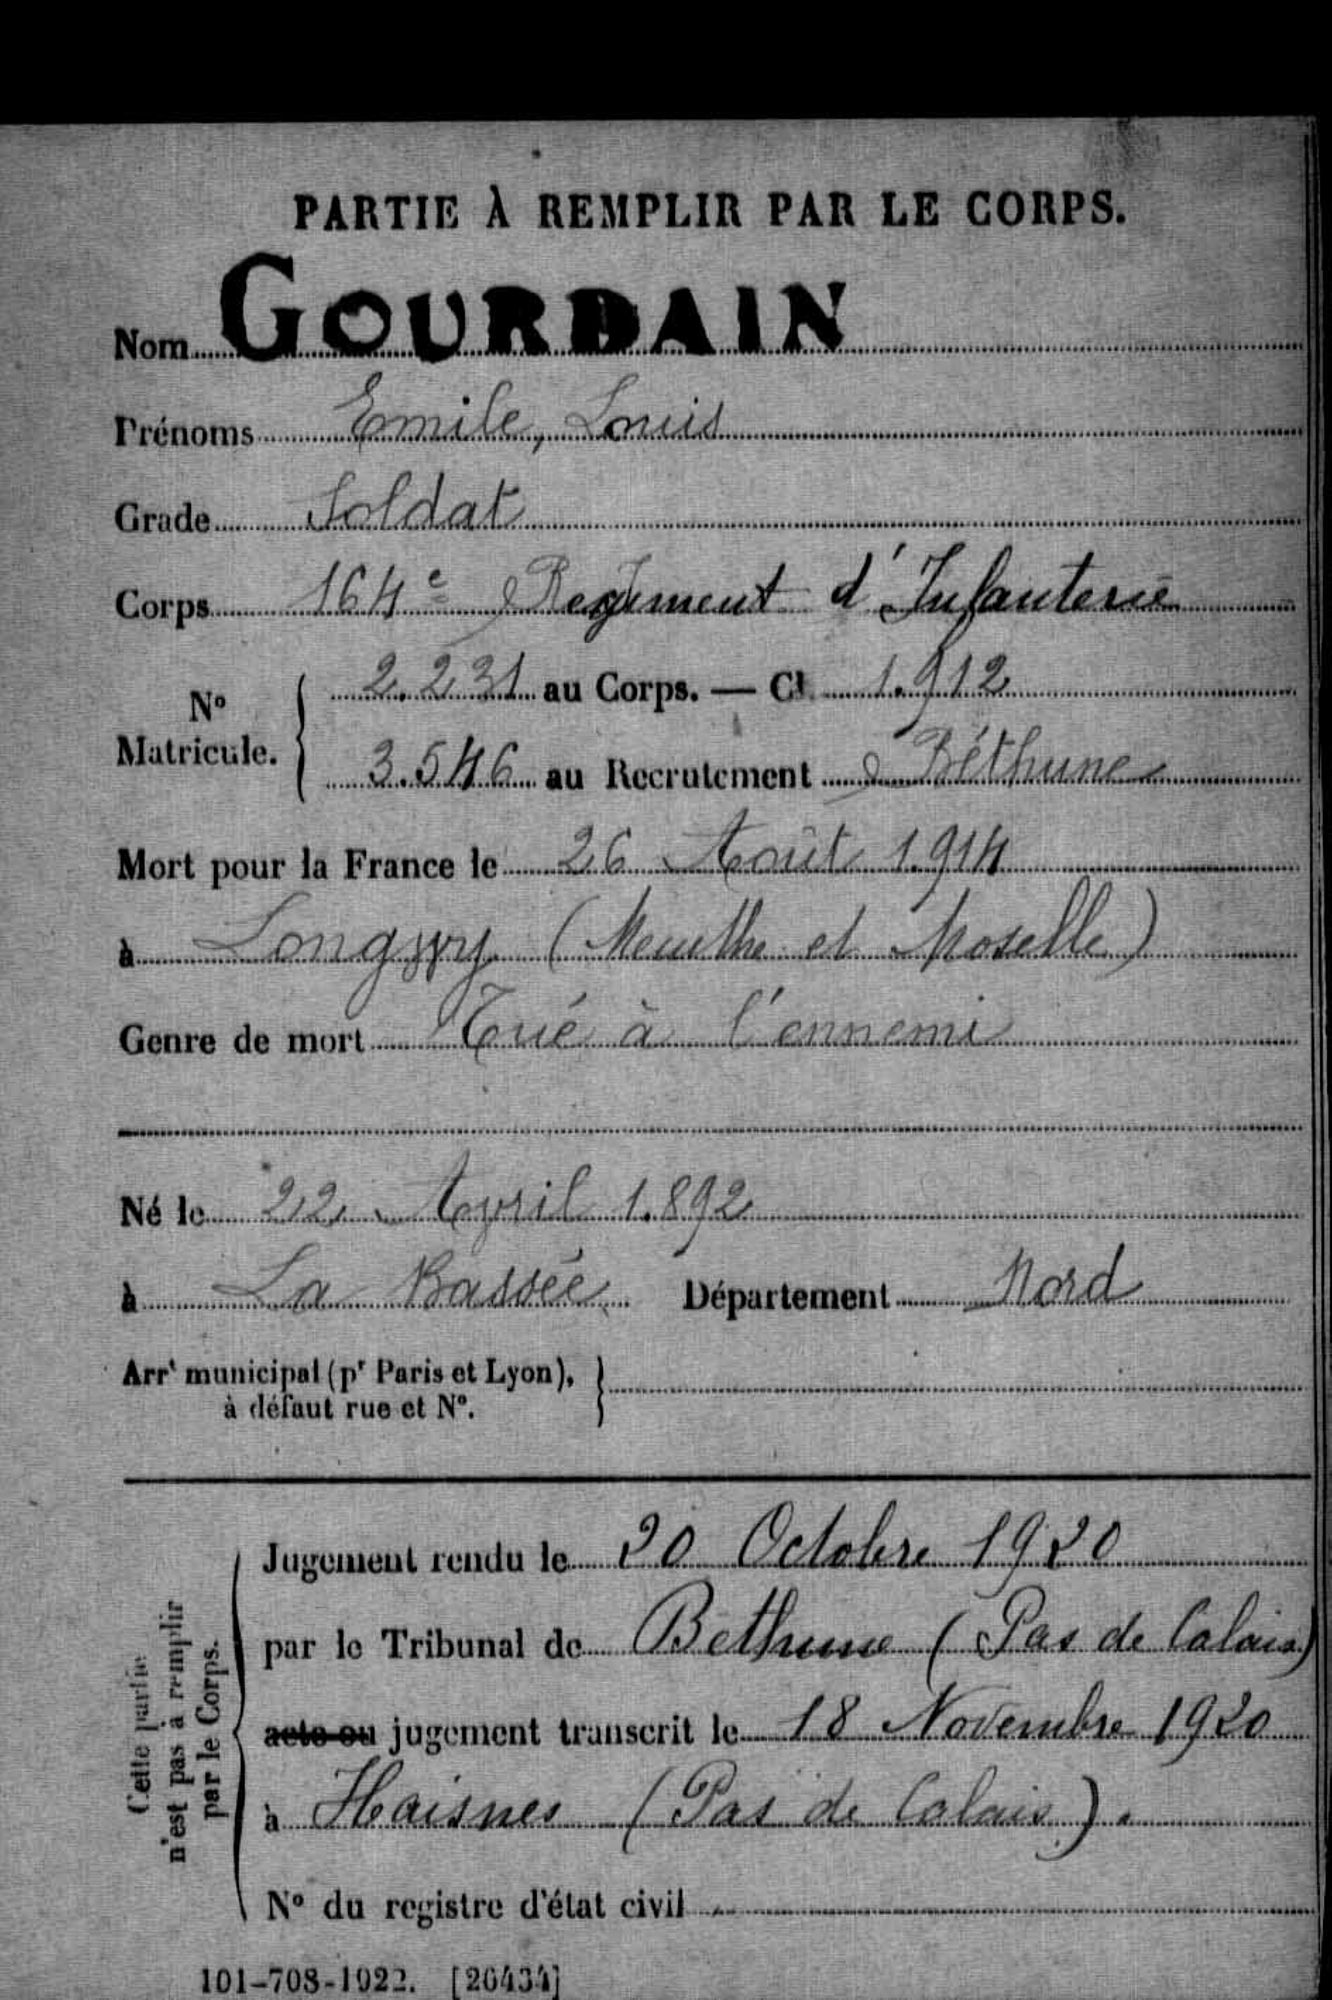 PARTIE À REMPLIR PAR LE CORPS.
Nom GOURDAIN
Prénoms Emile, Louis
Grade Soldat
Corps 164e Regiment d'Infanterie
No Matricule. 2.231 au Corps. — Cl. 1.912
3.546 au Recrutement Béthune
Mort pour la France le 26 Août 1.914
à Longwy (Meurthe et Moselle)
Genre de mort Tué à l'ennemi
Né le 22 Avril 1.892
à La Bassée Département Nord
Arrt municipal (pr Paris et Lyon),
à défaut rue et No.
Cette partie
n'est pas à remplir
par le Corps.
Jugement rendu le 20 Octobre 1920
par le Tribunal de Bethune (Pas de Calais)
acte ou jugement transcrit le 18 Novembre 1920
à Haisnes (Pas de Calais).
No du registre d'état civil
101-708-1922. [26434]